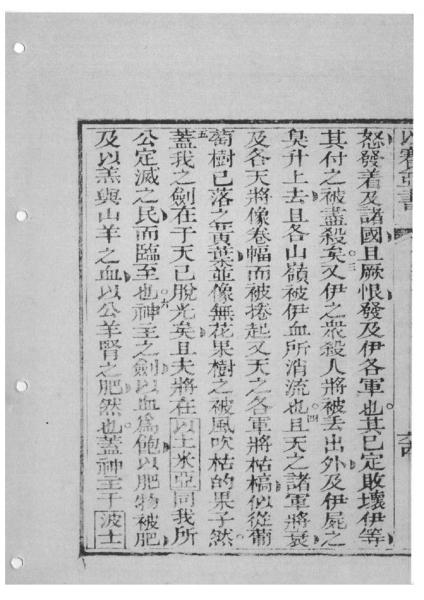 以賽亞書
怒發着及諸國且厥恨發及伊各軍也。其已定敗壞伊等
其付之被盡殺矣。三又伊之衆殺人將被丟出外及伊屍之
臭升上去且各山嶺被伊血所消流也。四且天之諸軍將衰
及各天將像卷幅而被捲起又天之各軍將枯槁似從葡
萄樹已落之黃葉並像無花果樹之被風吹枯的果子然。
五蓋我之劍在于天已脫光矣且夫將在以土米亞同我所
公定滅之民而臨至也。六神主之劍以血爲飽以肥物被肥
及以羔與山羊之血以公羊腎之肥然也。蓋神主于波士